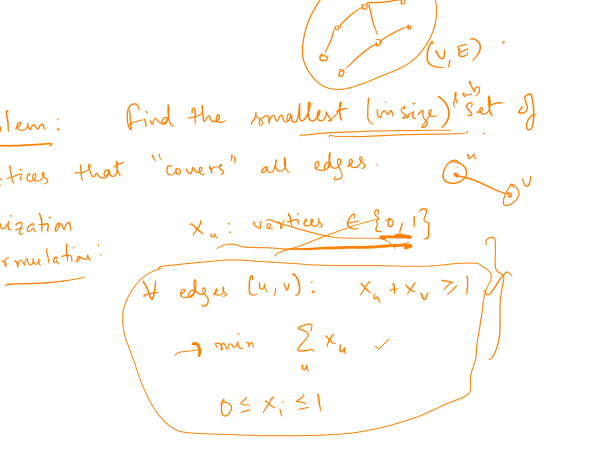 (V, E)
lem: Find the smallest (in size) subset of
tices that "covers" all edges.
u
v
ization x_u: vertices ∈ {0, 1}
rmulation:
∀ edges (u, v): x_u + x_v ≥ 1
→ min ∑_u x_u ✓
0 ≤ x_i ≤ 1